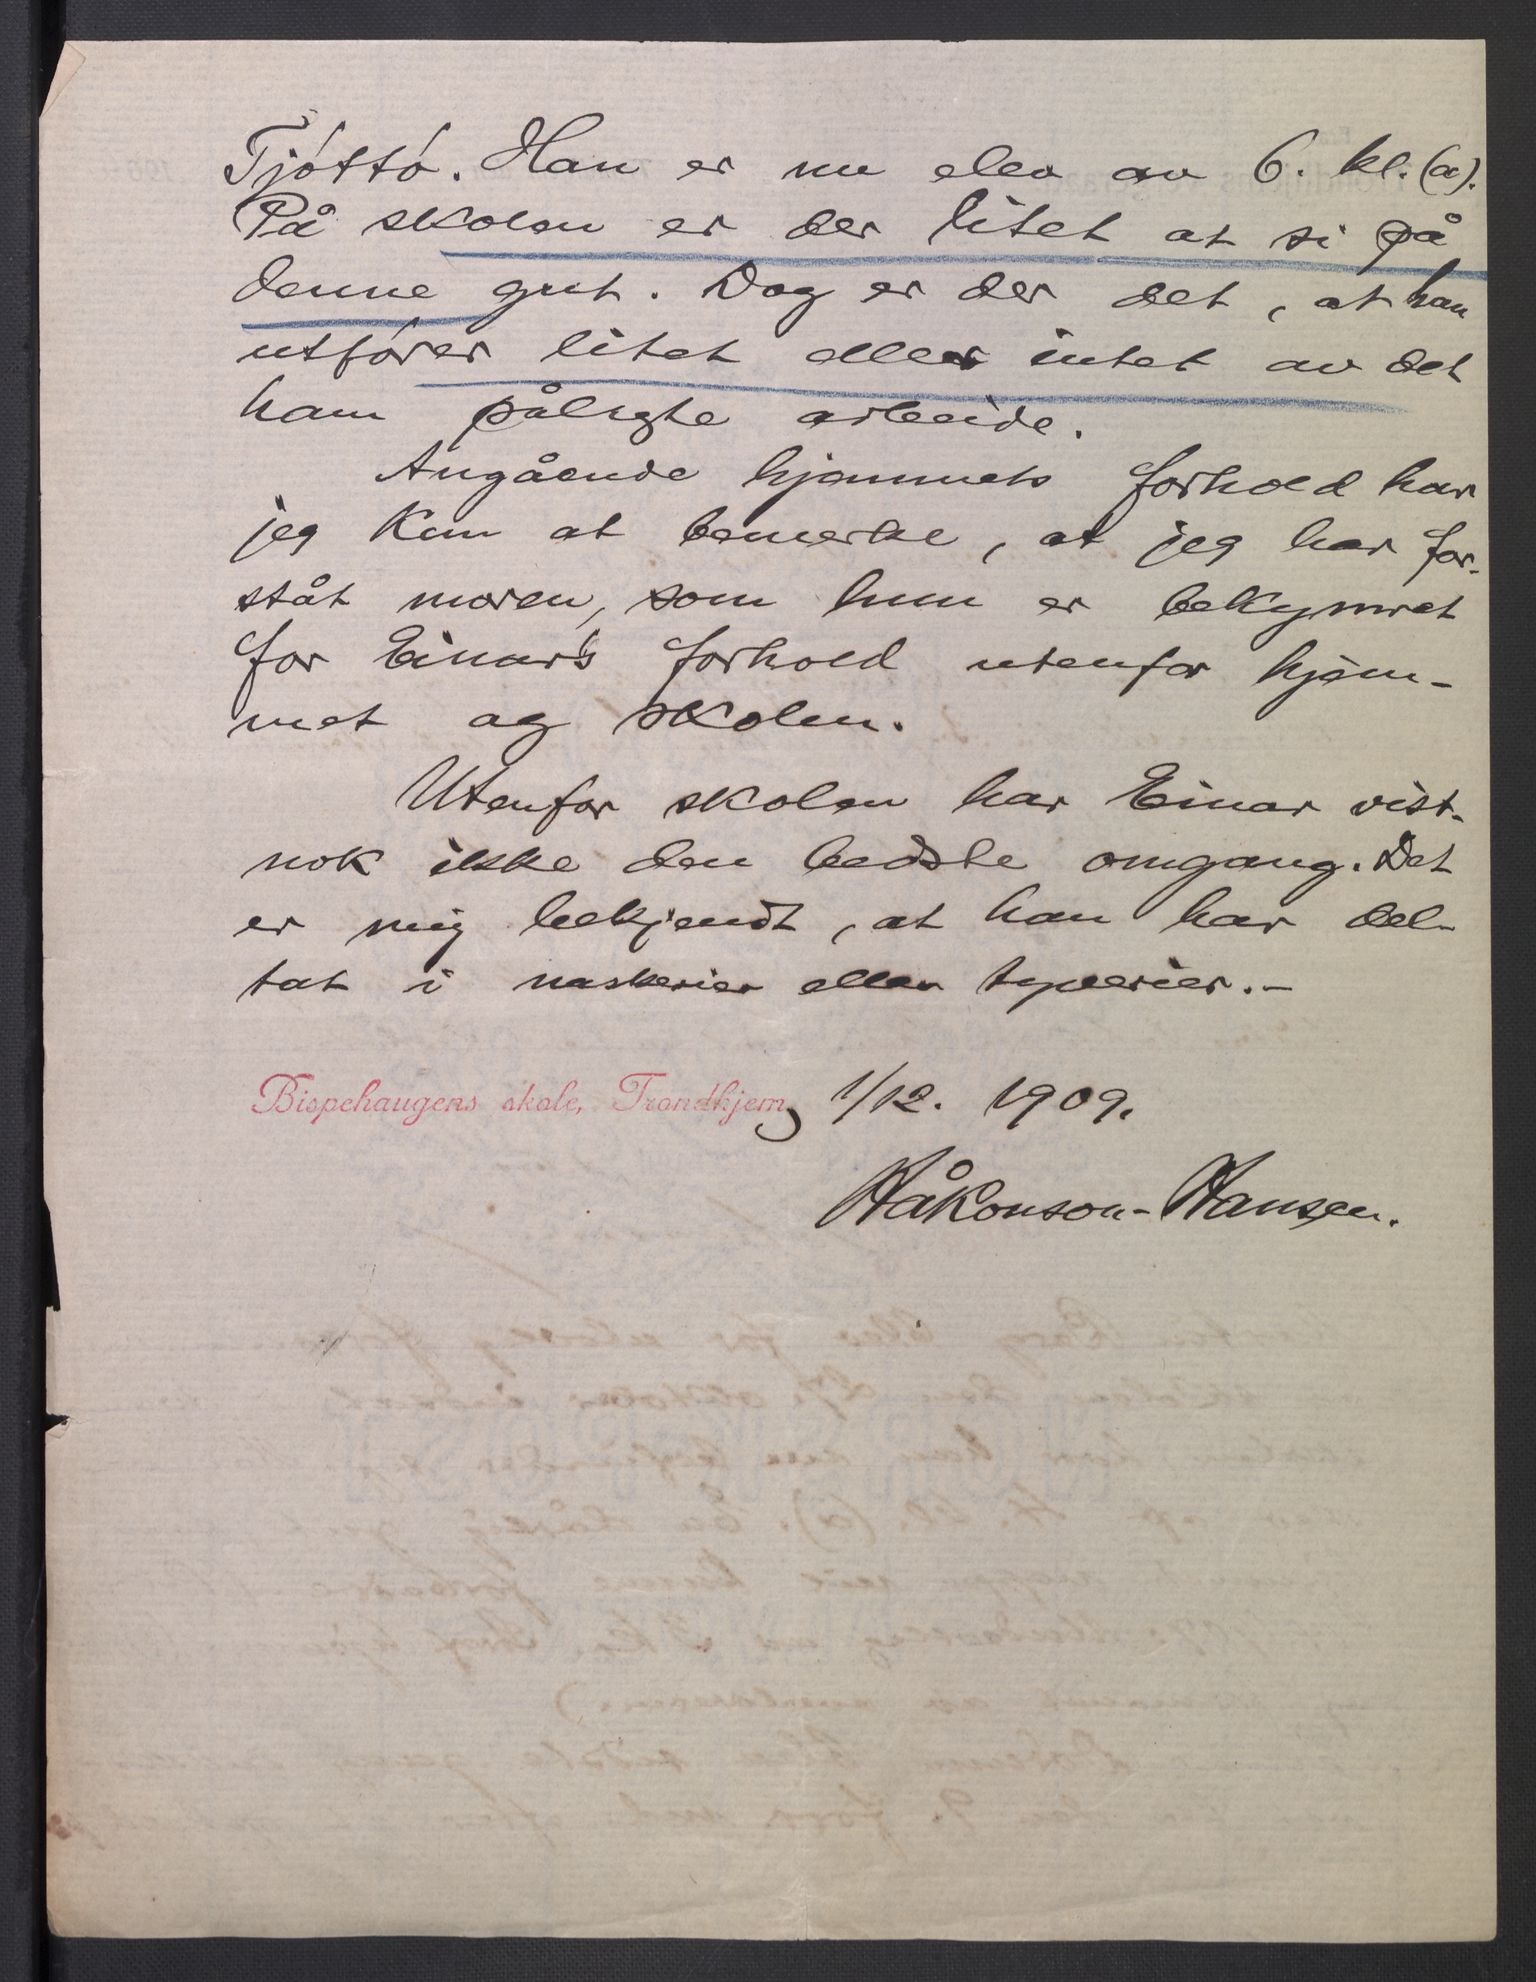 Tjóttó. Han er nu elev av 6. kl. (a).
På skolen er der litet at si på
denne gut. Dog er der det, at han
utfórer litet eller intet av det
ham pålagte arbeide.
Angående hjemmets forhold har
jeg kun at bemerke, at jeg har for-
ståt moren, som hun er bekymret
for Einar's forhold utenfor hjem-
met og skolen.
Utenfor skolen har Einar vist-
nok ikke den bedste omgang. Det
er mig bekjendt, at han har del-
tat i naskerier eller tyverier.-
Bispehaugens skole, Trondhjem, 1/12. 1909.
Håkonson-Hansen.